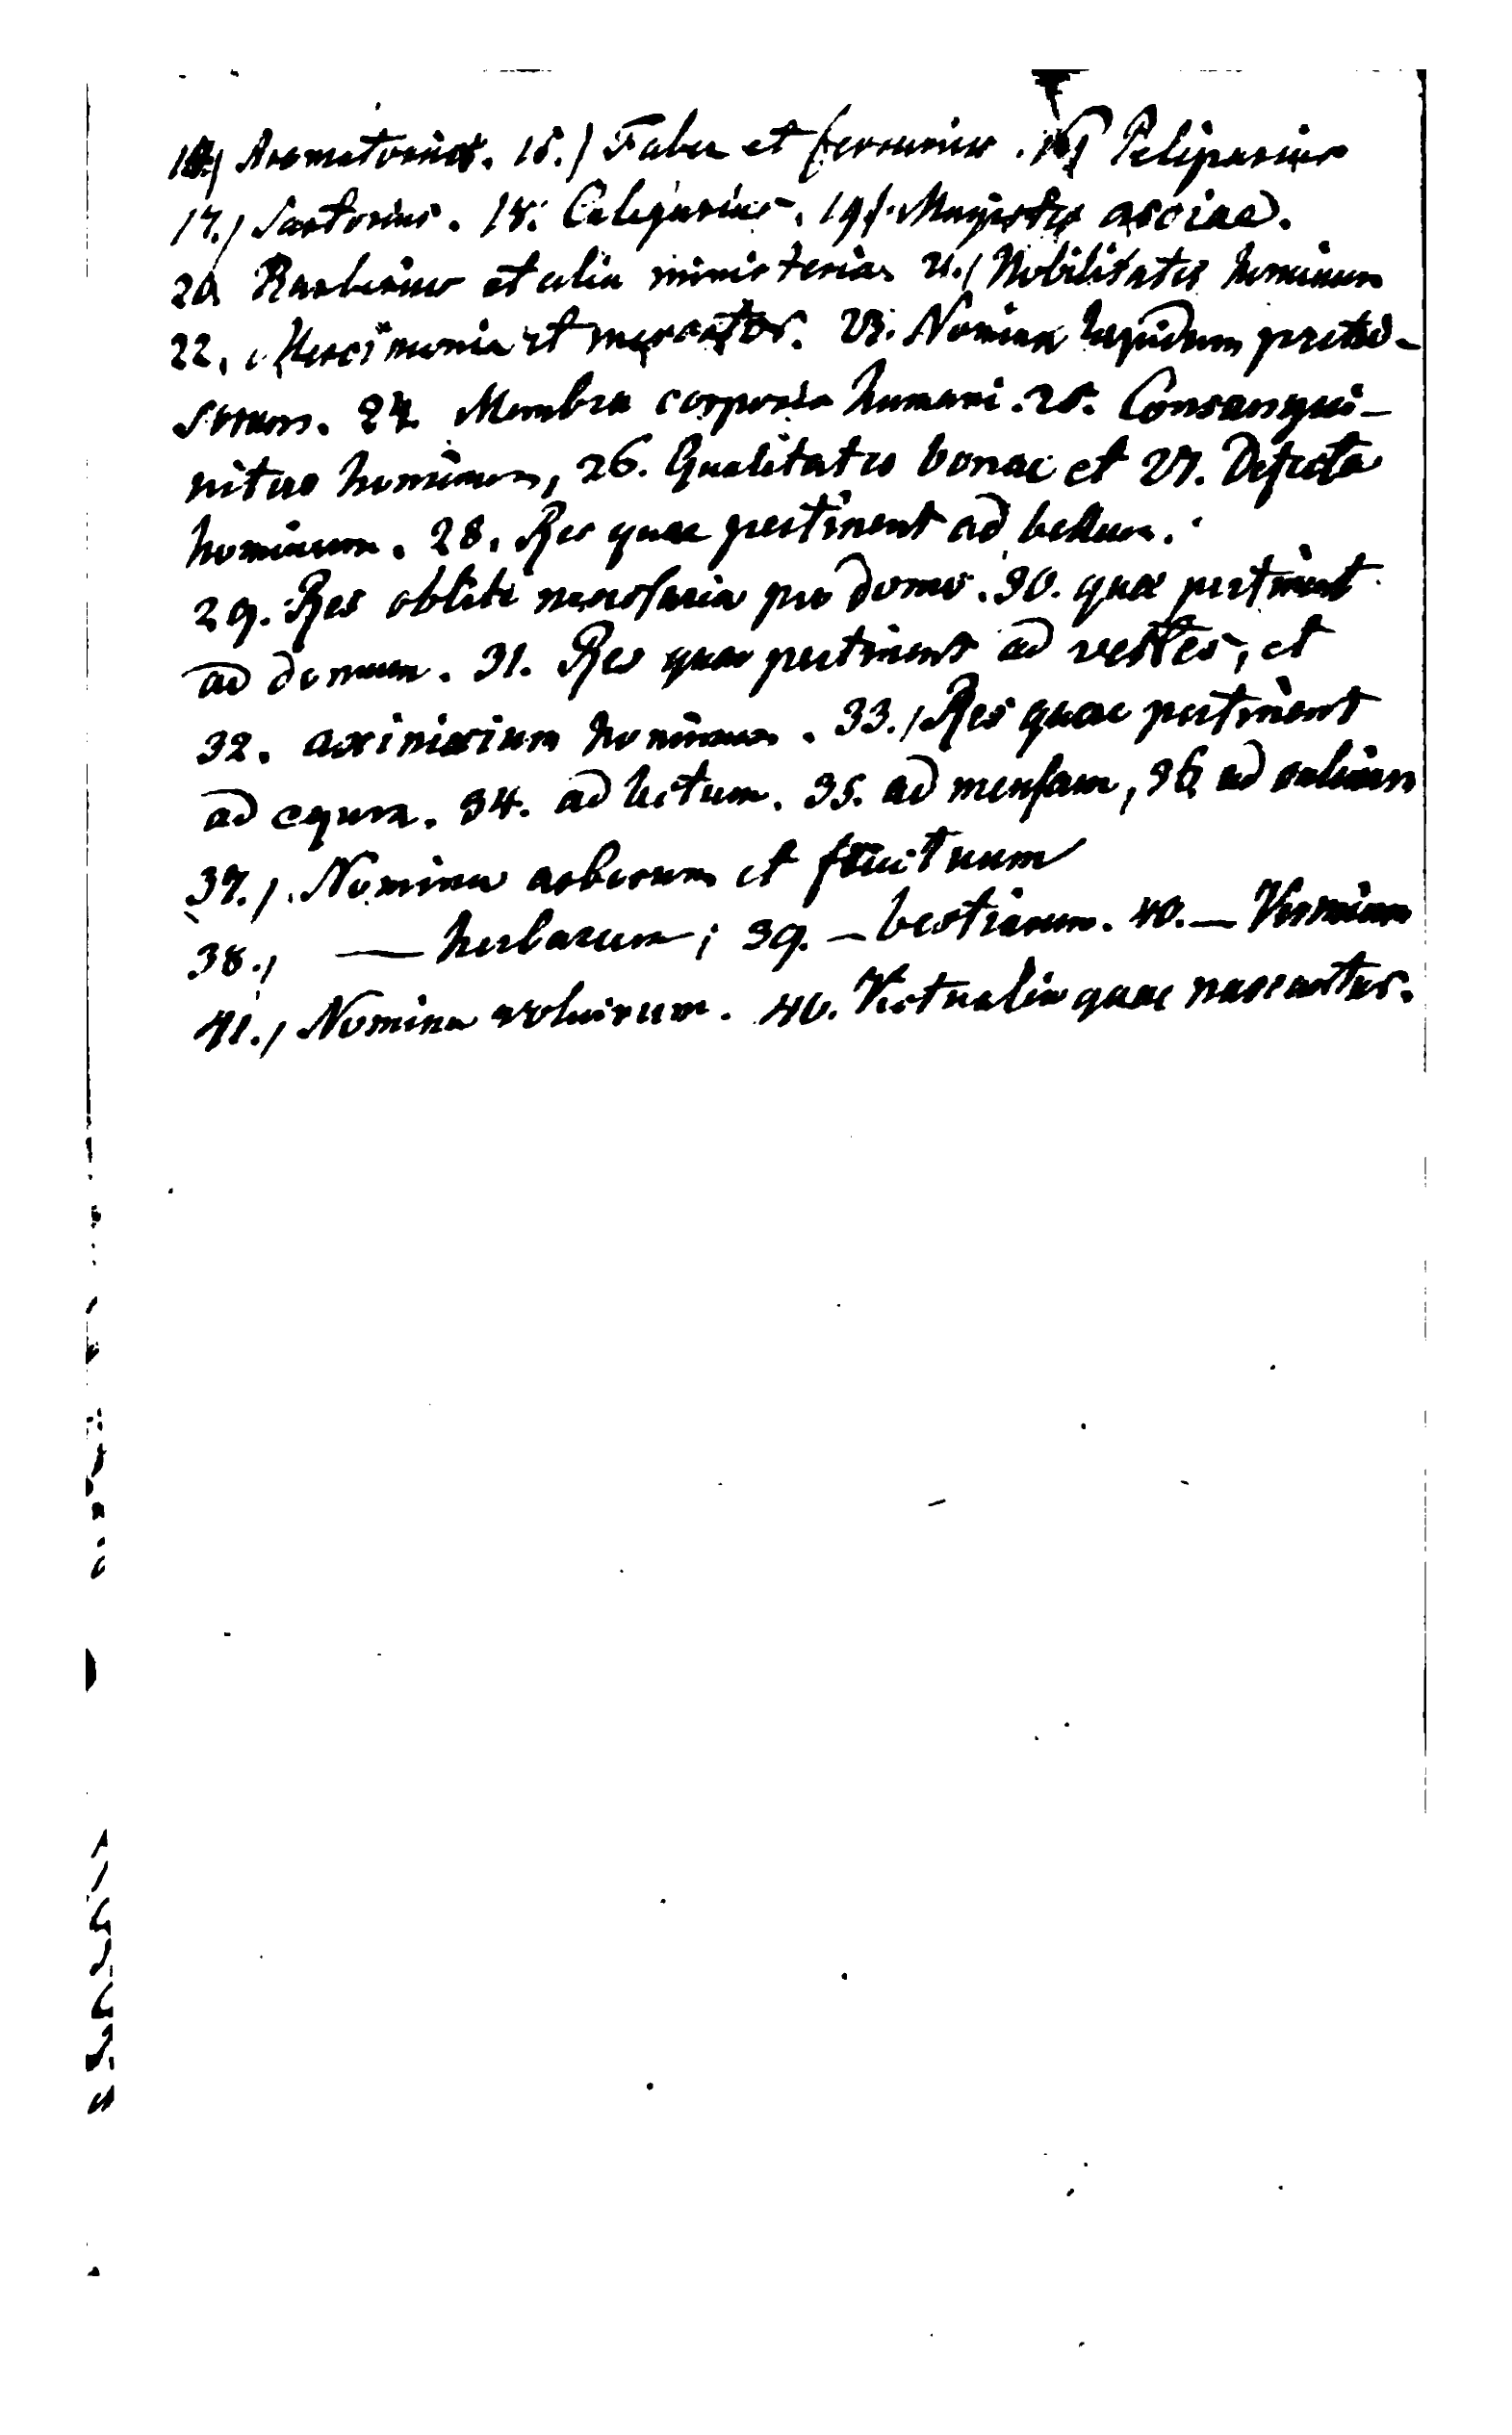 14.) Aromatorius. 15.) Faber et ferrarius. 16) Peliparius
17.) Sartorius. 18. Caligarius. 19). Magister asciae.
20. Barberius et alia ministeria. 21.) Nobilitates hominum
22. Mercimonia et mercator. 23. Nomina lapidum pretio-
sorum. 24. Membra corporis humani. 25. Consangui-
nitas hominum, 26. Qualitates bonae et 27. Defecta
hominum. 28. Res quae pertinent ad bellum.
29. Res obliti necessaria pro domo. 30. quae pertinent
ad domum. 31. Res quae pertinent ad vestes, et
32. hominum. 33.) Res quae pertinent
ad equum. 34. ad lectum. 35. ad mensam, 36 ad
37.) Nomina arborum et fructuum
38.) — herbarum; 39. — bestiarum. 40. — Verminum
41.) Nomina volucrum. 42. Victualia quae nascantur.